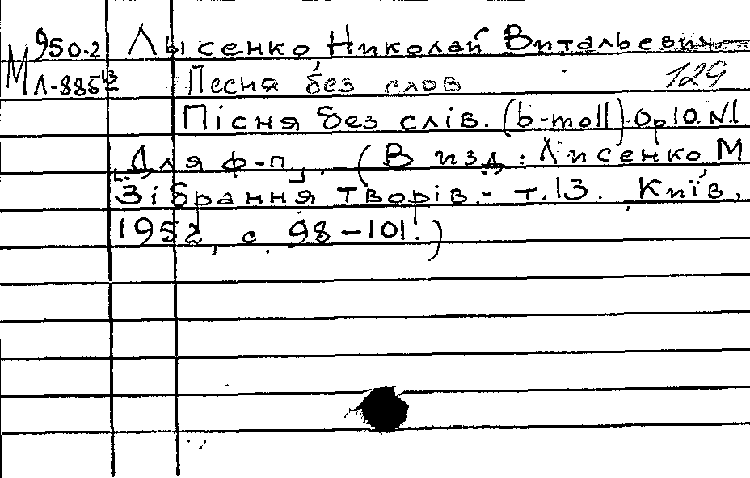 950.2 Лысенко Николай Витальевич
М Л-885 13 Песня без слов 129
Пісня без слів. (b-moll). Op 10. N1
Для ф-п. (В изд.: Лисенко М
Зібрання творів.- т.13. Київ,
1952, с. 98-101.)